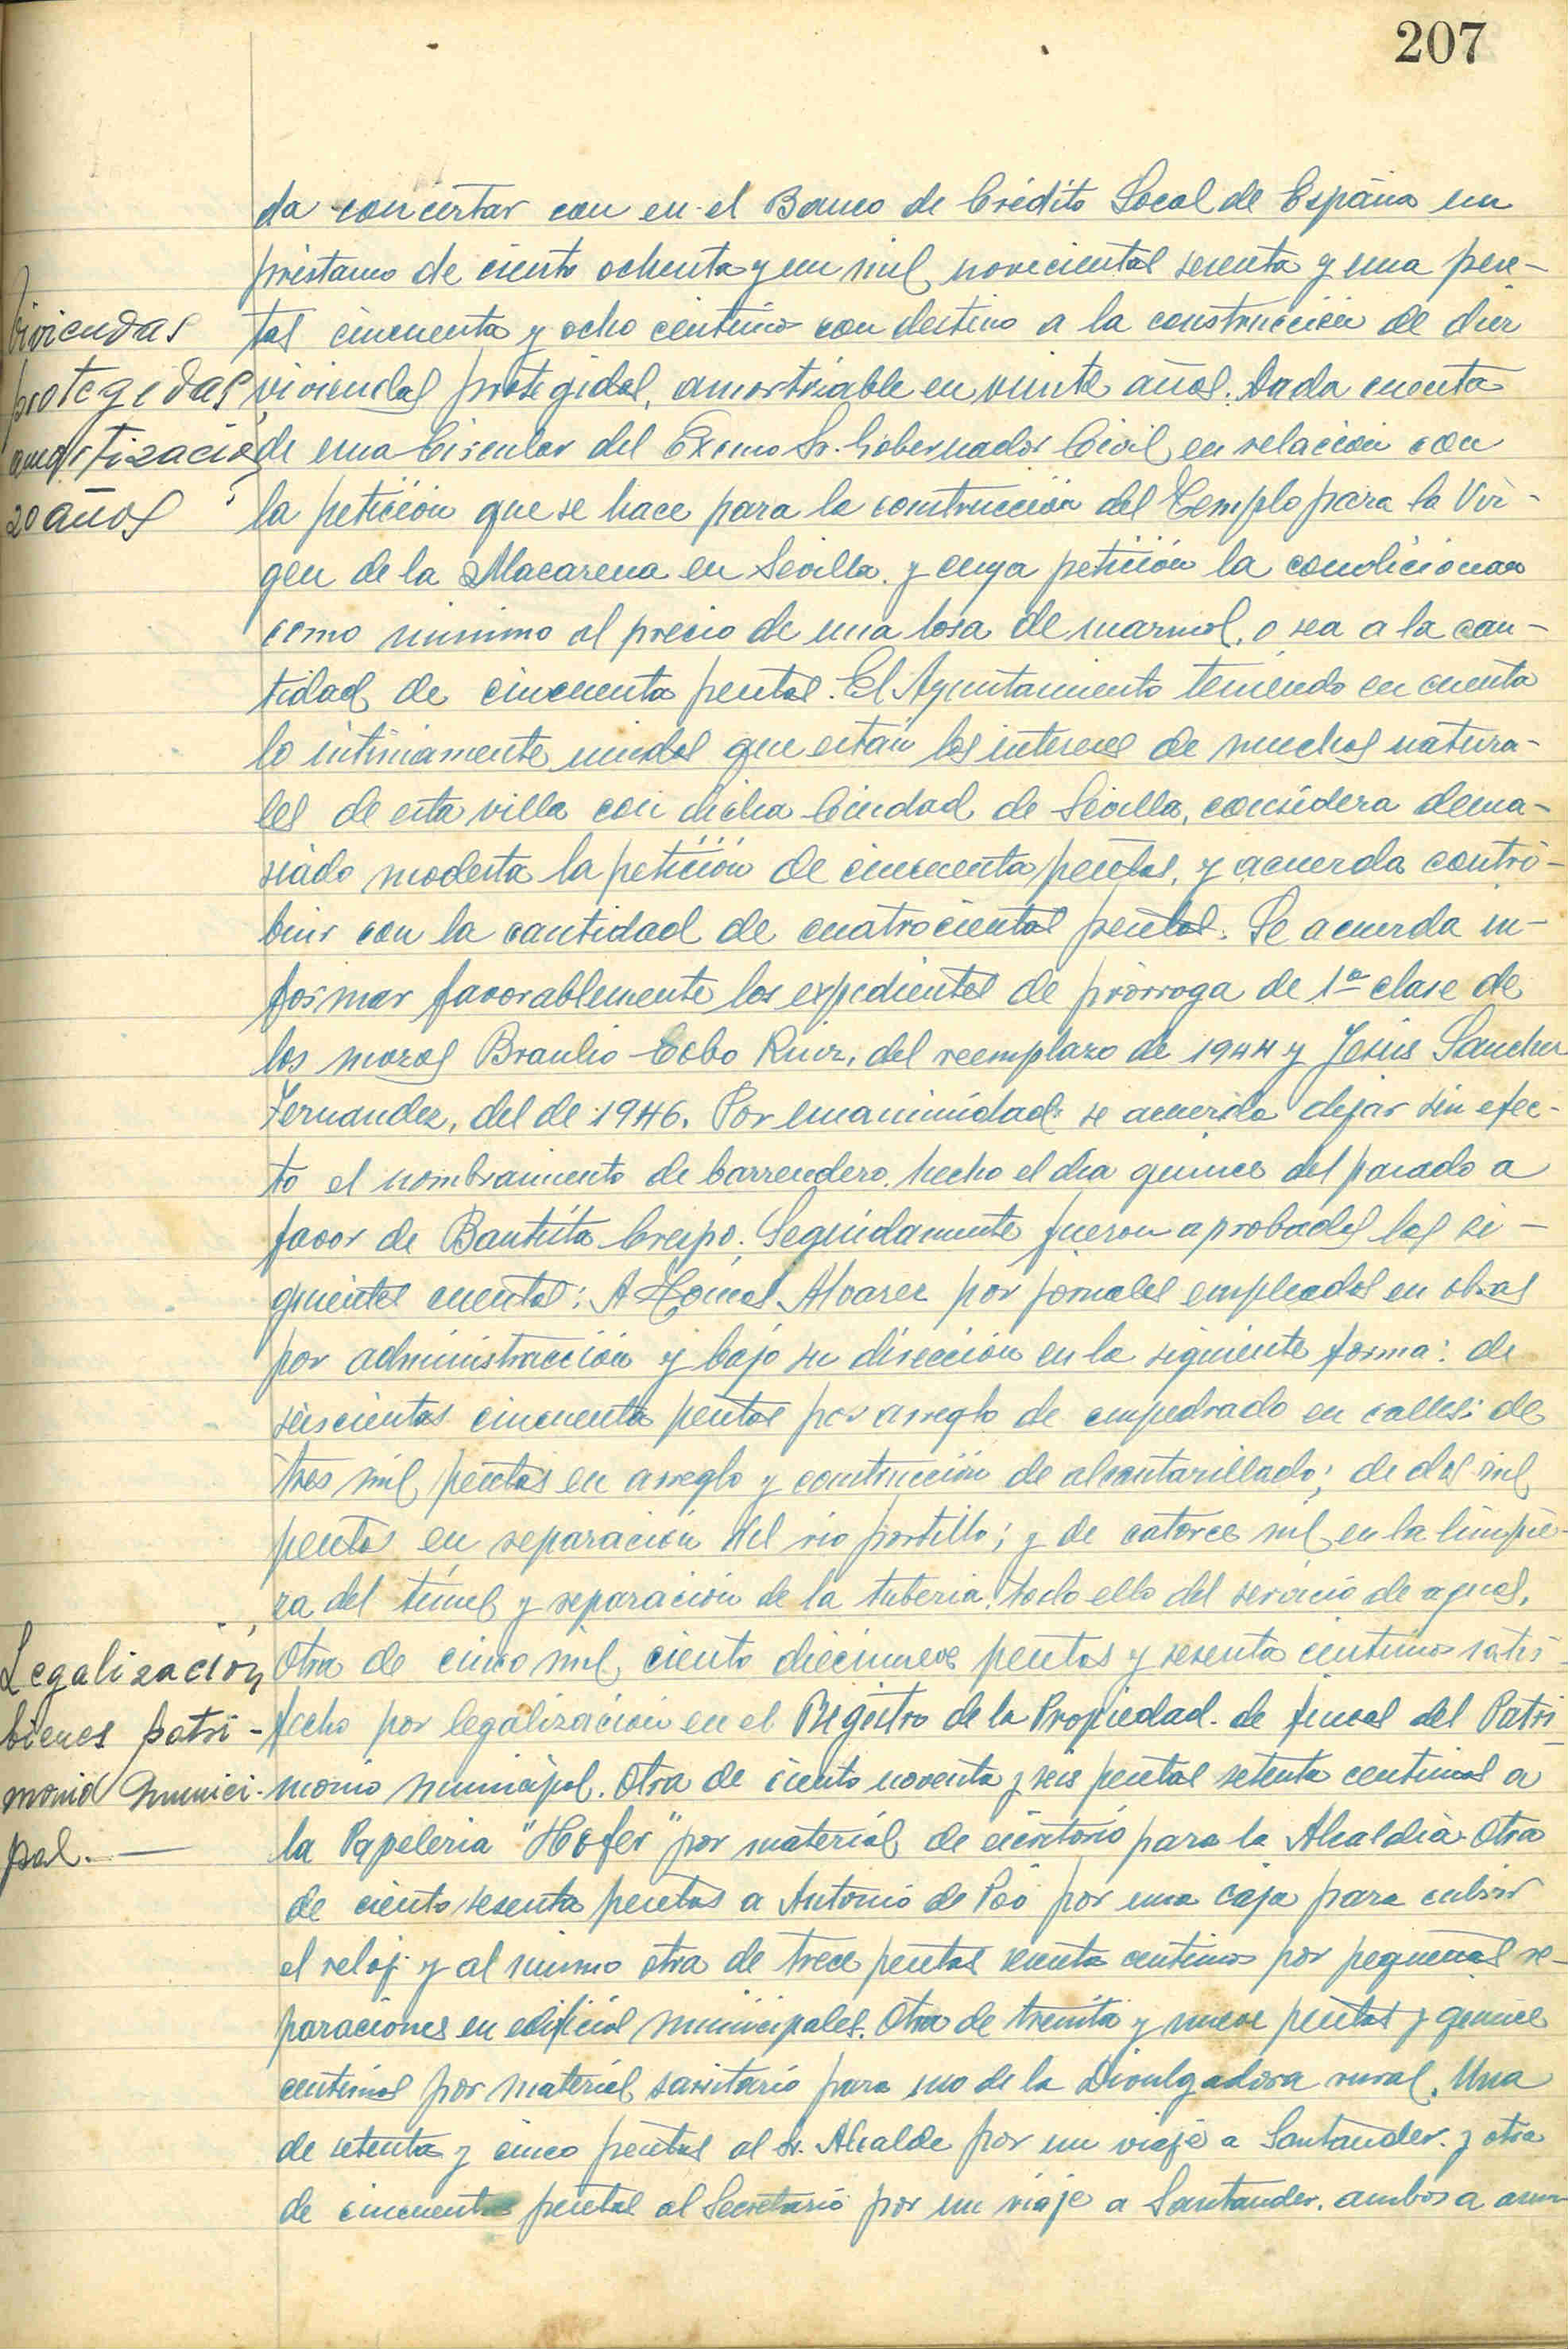 207
da concertar con en el Banco de Crédito Local de España un
préstamo de ciento ochenta y un mil novecientas sesenta y una pese-
tas cincuenta y ocho céntimos con destino a la construcción de diez
viviendas protegidas, amortizable en veinte años. Dada cuenta
de una Circular del Excmo Sr. Gobernador Civil en relación con
la petición que se hace para la construcción del Templo para la Vir-
gen de la Macarena en Sevilla y cuya petición la condicionan
como minimo al precio de una losa de marmol, o sea a la can-
tidad de cincuenta pesetas. El Ayuntamiento teniendo en cuenta
lo intimamente unidos que están los intereses de muchos natura-
les de esta villa con dicha Ciudad de Sevilla, considera dema-
siado modesta la petición de cincuenta pesetas, y acuerda contri-
buir con la cantidad de cuatrocientas pesetas. Se acuerda in-
formar favorablemente los expedientes de prórroga de 1ª clase de
los mozos Braulio Cobo Ruiz, del reemplazo de 1944 y Jesús Sanchez
Fernandez, del de 1946. Por unanimidad se acuerda dejar sin efec-
to el nombramiento de barrendero hecho el dia quince del pasado a
favor de Bautista Crespo. Seguidamente fueron aprobadas las si-
guientes cuentas: A Tomás Alvarez por jornales empleados en obras
por administracción y bajo su dirección en la siguiente forma: de
seiscientas cincuenta pesetas por arreglo de empedrado en calles; de
tres mil pesetas en arreglo y construcción de alcantarillado; de dos mil
pesetas en reparación del rio portillo; y de catorce mil en la limpie-
za del túnel y reparación de la tuberia, todo ello del servicio de aguas.
Otra de cinco mil ciento diecinueve pesetas y sesenta centimos satis-
fecho por legalización en el Registro de la Propiedad de fincas del Patri-
monio municipal. Otra de ciento noventa y seis pesetas setenta centimos a
la Papeleria "Hofer" por material de escritorio para la Alcaldia. Otra
de ciento sesenta pesetas a Antonio de Poó por una caja para cubrir
el reloj y al mismo otra de trece pesetas centimos por pequeñas re-
paraciones en edificios municipales. Otra de treinta y nueve pesetas y quince
centimos por material sanitario para uso de la Divulgadora rural. Una
de setenta y cinco pesetas al Sr. Alcalde por un viaje a Santander y otra
de cincuenta pesetas al Secretario por un viaje a Santander. ambos a
Viviendas
protegidas
amortizació
20 años
Legalización
bienes patri-
monio munici-
pal.—